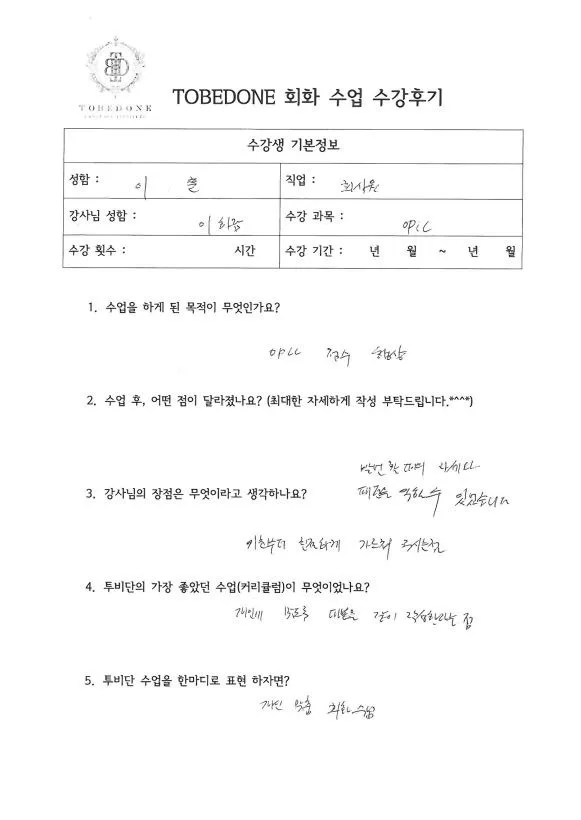 TOBEDONE
TOBEDONE 회화 수업 수강후기
수강생 기본정보
성함 : 이 솔
직업 : 회사원
강사님 성함 : 이
수강 과목 : OPIC
수강 횟수 : 시간
수강 기간 : 년 월 ~ 년 월
1. 수업을 하게 된 목적이 무엇인가요?
OPIC 점수 향상
2. 수업 후, 어떤 점이 달라졌나요? (최대한 자세하게 작성 부탁드립니다.*^^*)
3. 강사님의 장점은 무엇이라고 생각하나요?
있었습니다
기초부터 친절하게 가르쳐 주시는점
4. 투비단의 가장 좋았던 수업(커리큘럼)이 무엇이었나요?
개인에 맞도록 대본을 같이 점
5. 투비단 수업을 한마디로 표현 하자면?
개인 맞춤 회화수업